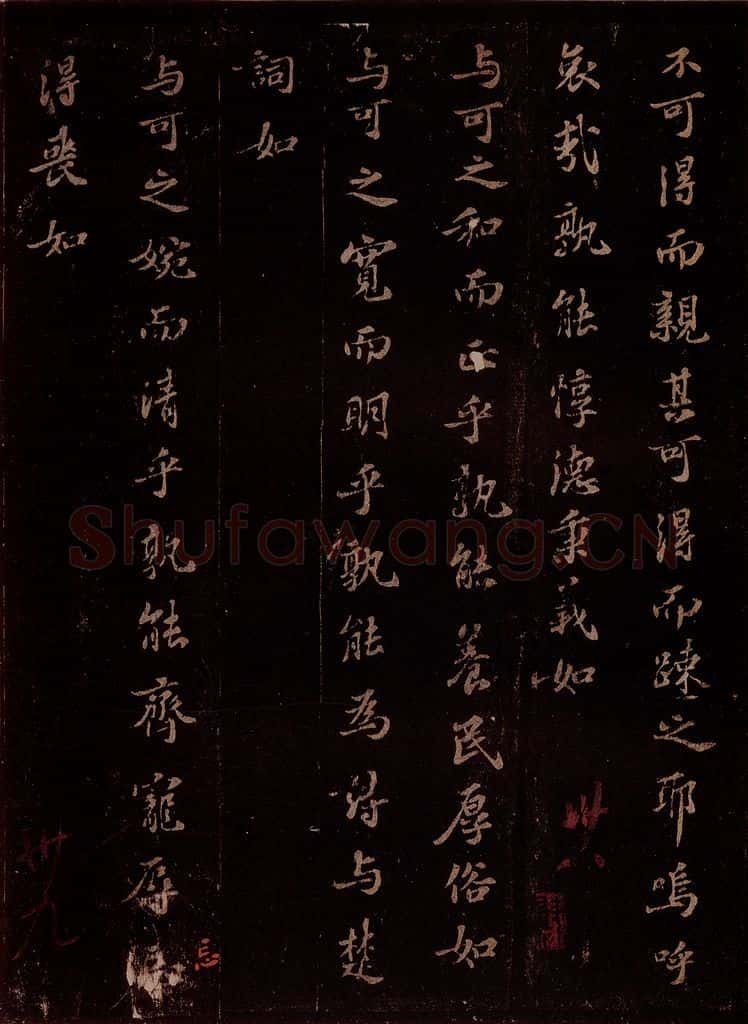 不可得而親其可得而踈之耶嗚呼
哀哉孰能惇德秉義如
卅八
与可之和而正乎孰能養民厚俗如
与可之寬而明乎孰能為詩与楚
詞如
与可之婉而清乎孰能齊寵辱
忘
得喪如
卅九
Shufawang.CN